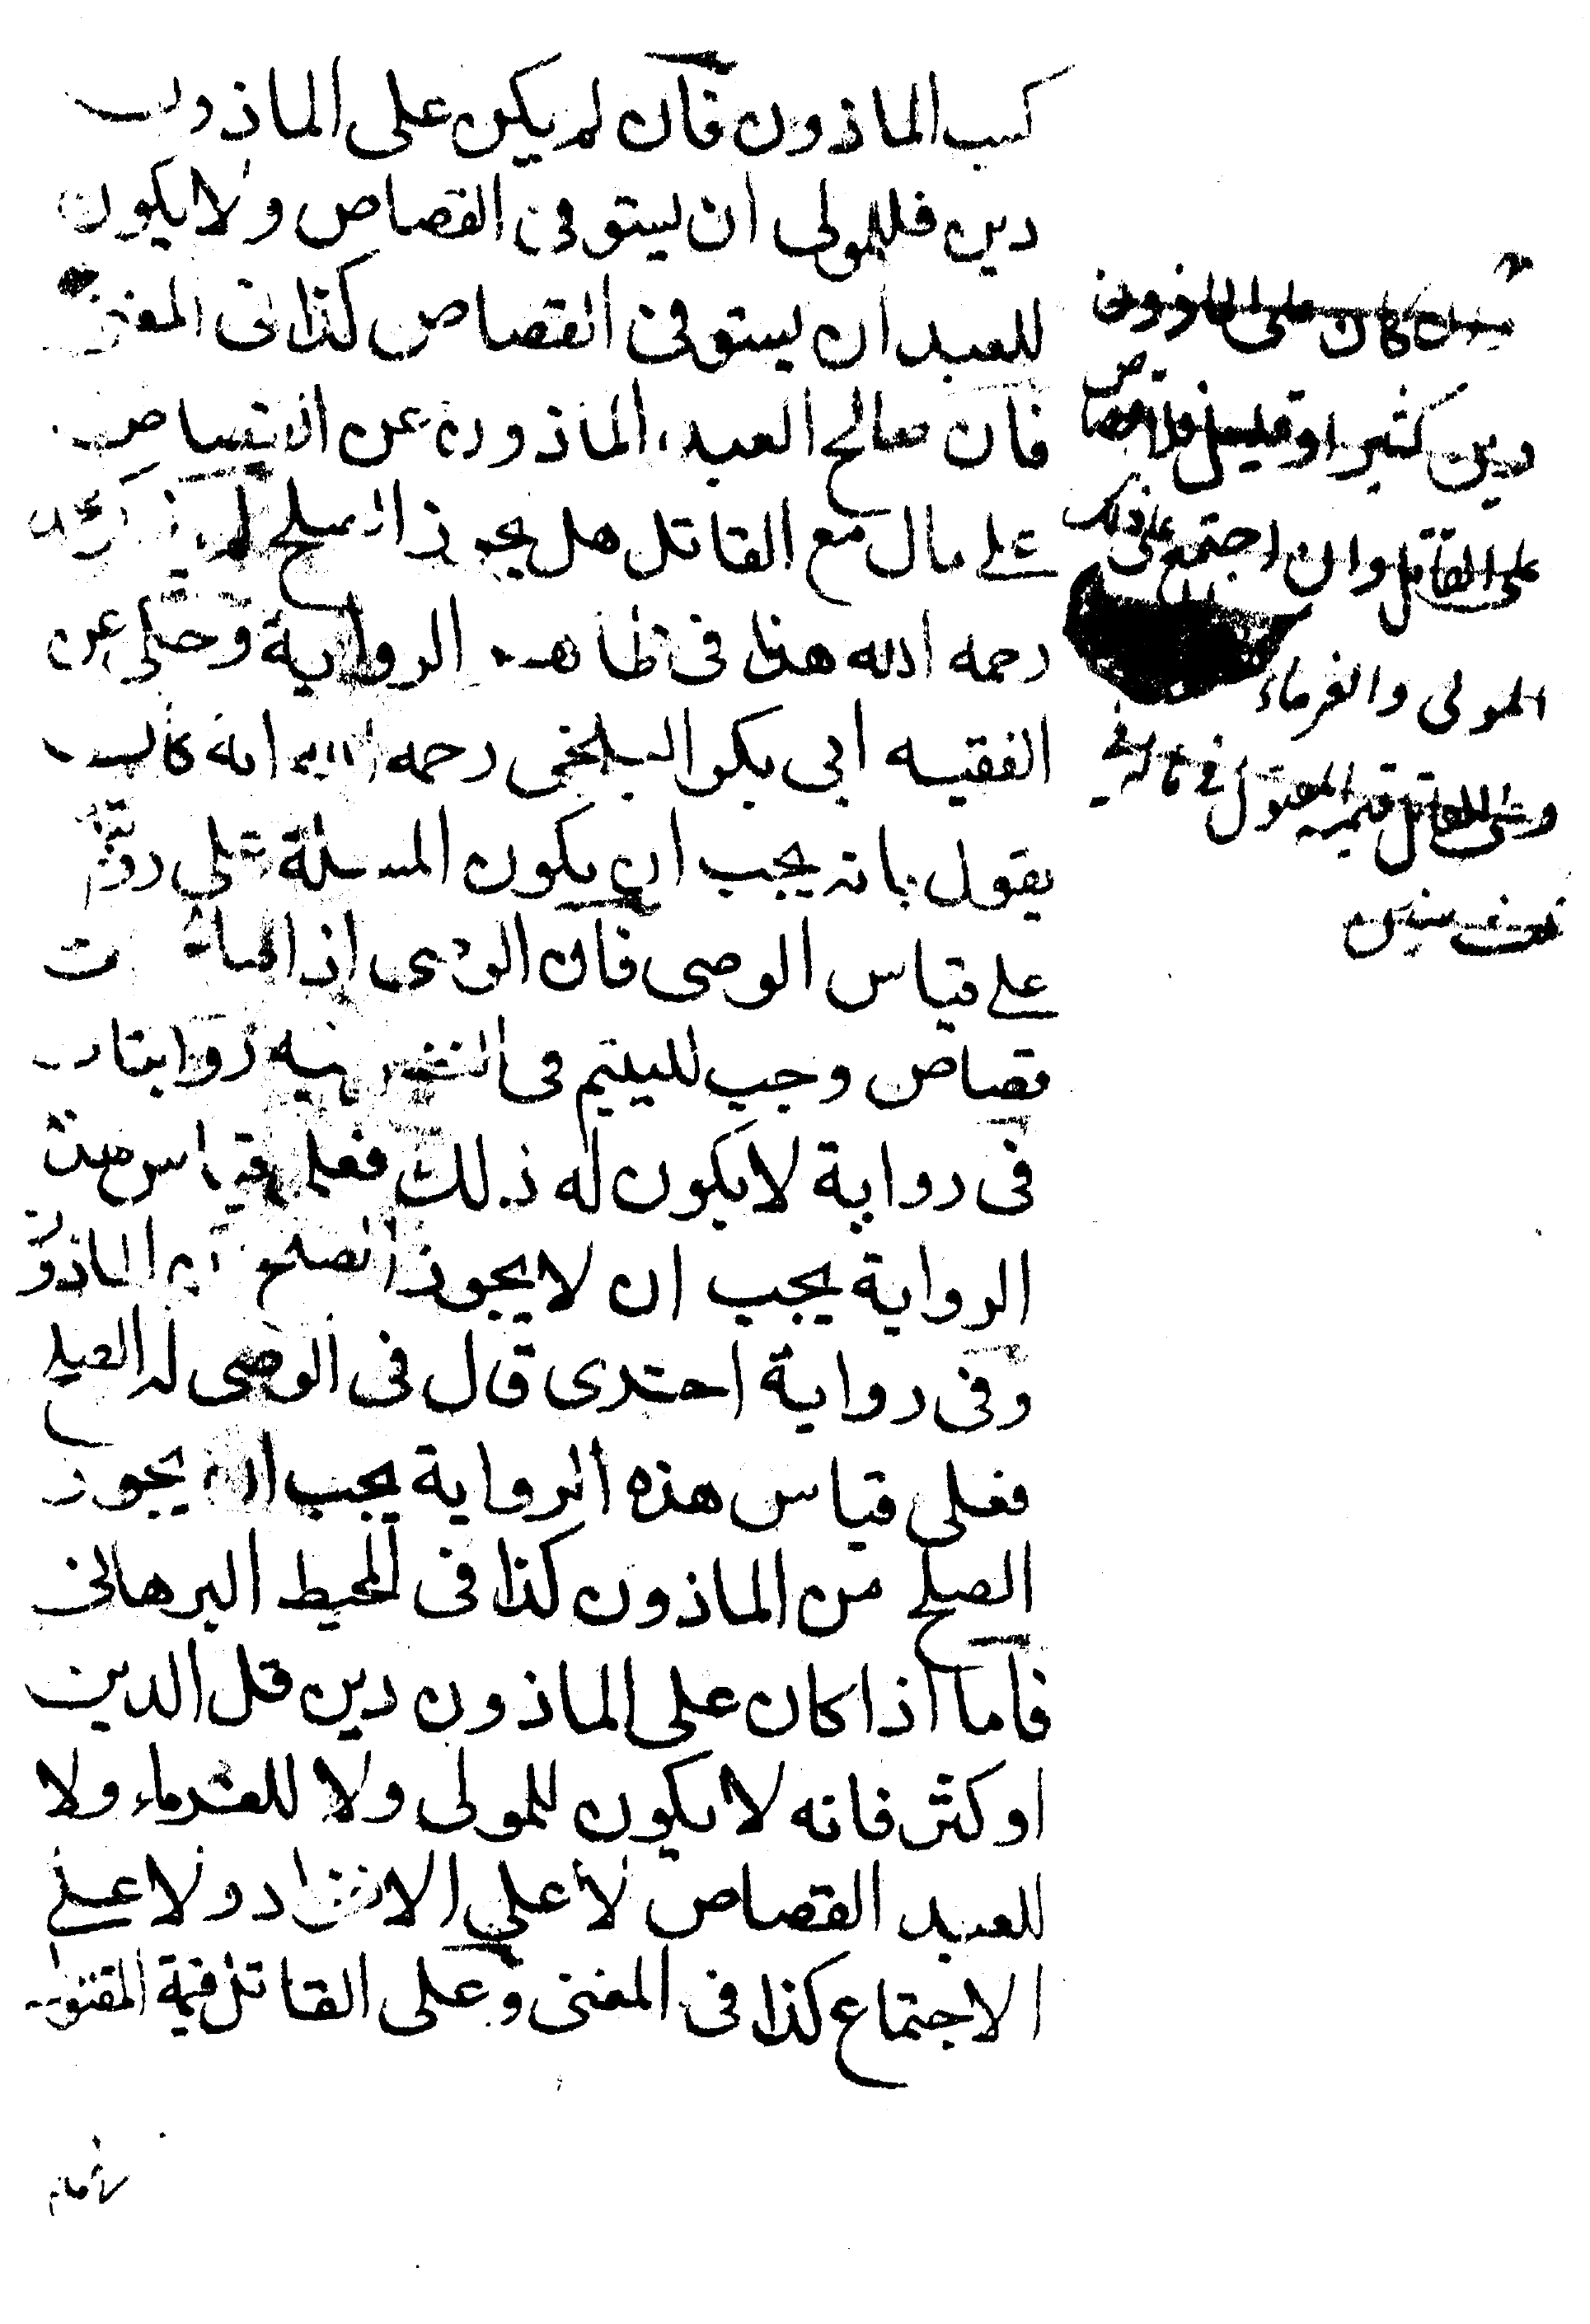 كسب الماذون فان لم يكن على الماذون
دين فللمولى ان يستوفى القصاص ولا يكون
للعبد ان يستوفى القصاص كذا فى المغنى
فان صالح العبد الماذون عن القصاص
على مال مع القاتل هل يجوز الصلح لم محمد
رحمه الله هذا فى ظاهر الرواية وحكى عن
الفقيه ابى بكر البلخى رحمه الله انه كان
يقول بانه يجب ان يكون المسئلة على
على قياس الوصى فان الوصى اذا
قصاص وجب لليتيم فى النفس فيه روايتان
فى رواية لا يكون له ذلك فعلى قياس هذه
الرواية يجب ان لا يجوز الصلح من الماذون
وفى رواية اخرى قال فى الوصى له الصلح
فعلى قياس هذه الرواية يجب ان يجوز
الصلح من الماذون كذا فى المحيط البرهانى
فاما اذا كان على الماذون دين قل الدين
او كثر فانه لا يكون للمولى ولا للغرماء ولا
للعبد القصاص لا على الانفراد ولا على
الاجتماع كذا فى المغنى وعلى القاتل قيمة المقتول
كان على الماذون
دين كثير او قليل فلا قصاص
على القاتل وان اجتمع على ذلك
المولى والغرماء
وعلى القاتل قيمة المقتول فى ماله فى
ثلث سنين